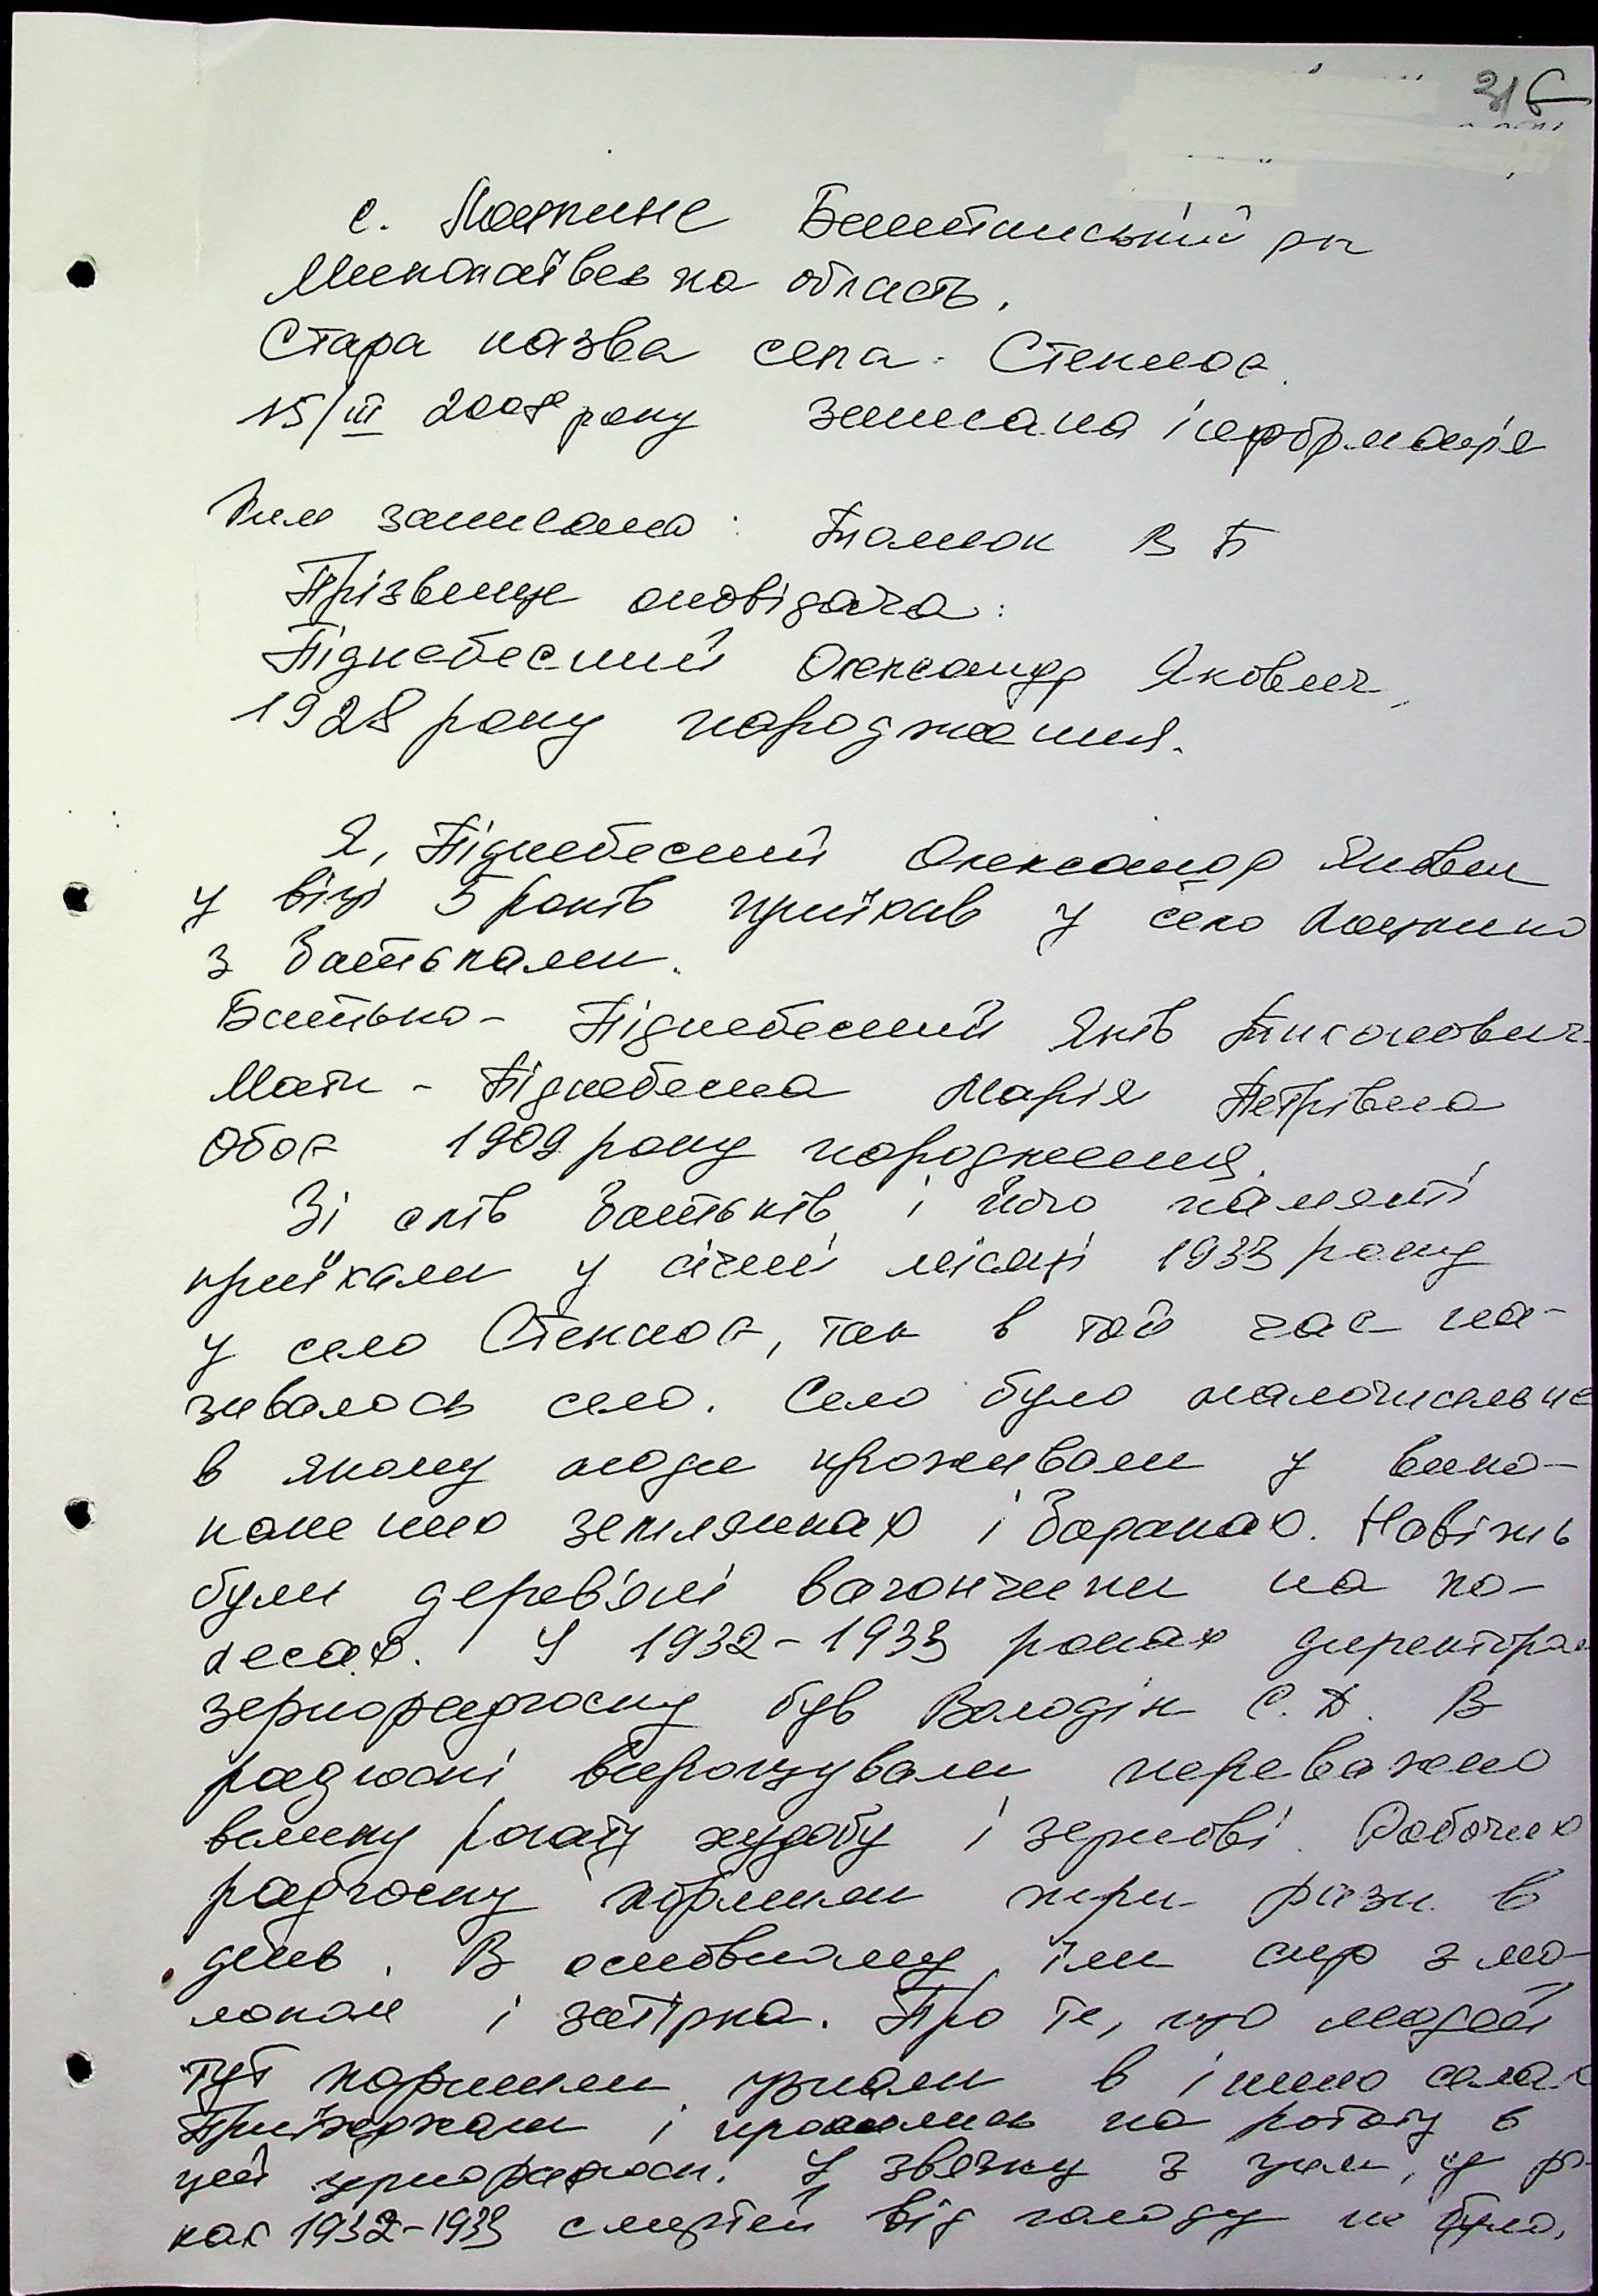 316
с. Баштанський рн
Миколаївська область.
Стара назва села.
15/III 2008 року записана інформація
Ким записано: В Б
Прізвище оповідача:
Піднебесний Олександр Якович,
1928 року народження.
Я, Піднебесний Олександр Якович
у віці 5 років приїхав у село
з батьками.
Батько - Піднебесний Яків
Мати - Піднебесна Марія Петрівна
Обоє 1909 року народження.
Зі слів батьків і його памяті
приїхали у січні місяці 1933 року
у село, так в той час на-
зивалось село. Село було малочисельне
в якому люди проживали у вико-
паних землянках і бараках. Навіть
були дерев'яні вагончики на ко-
лесах. У 1932-1933 роках директором
зернорадгоспу був Володін С. Д. В
радгоспі вирощували переважно
велику рогату худобу і зернові. Робочих
радгоспу кормили три рази в
день. В основному їли сир з мо-
локом і затірка. Про те, що людей
тут кормили узнали в інших селах
Приїжджали і просились на роботу в
цей зернорадгосп. У звязку з цим, у ро-
ках 1932-1933 смертей від голоду не було.